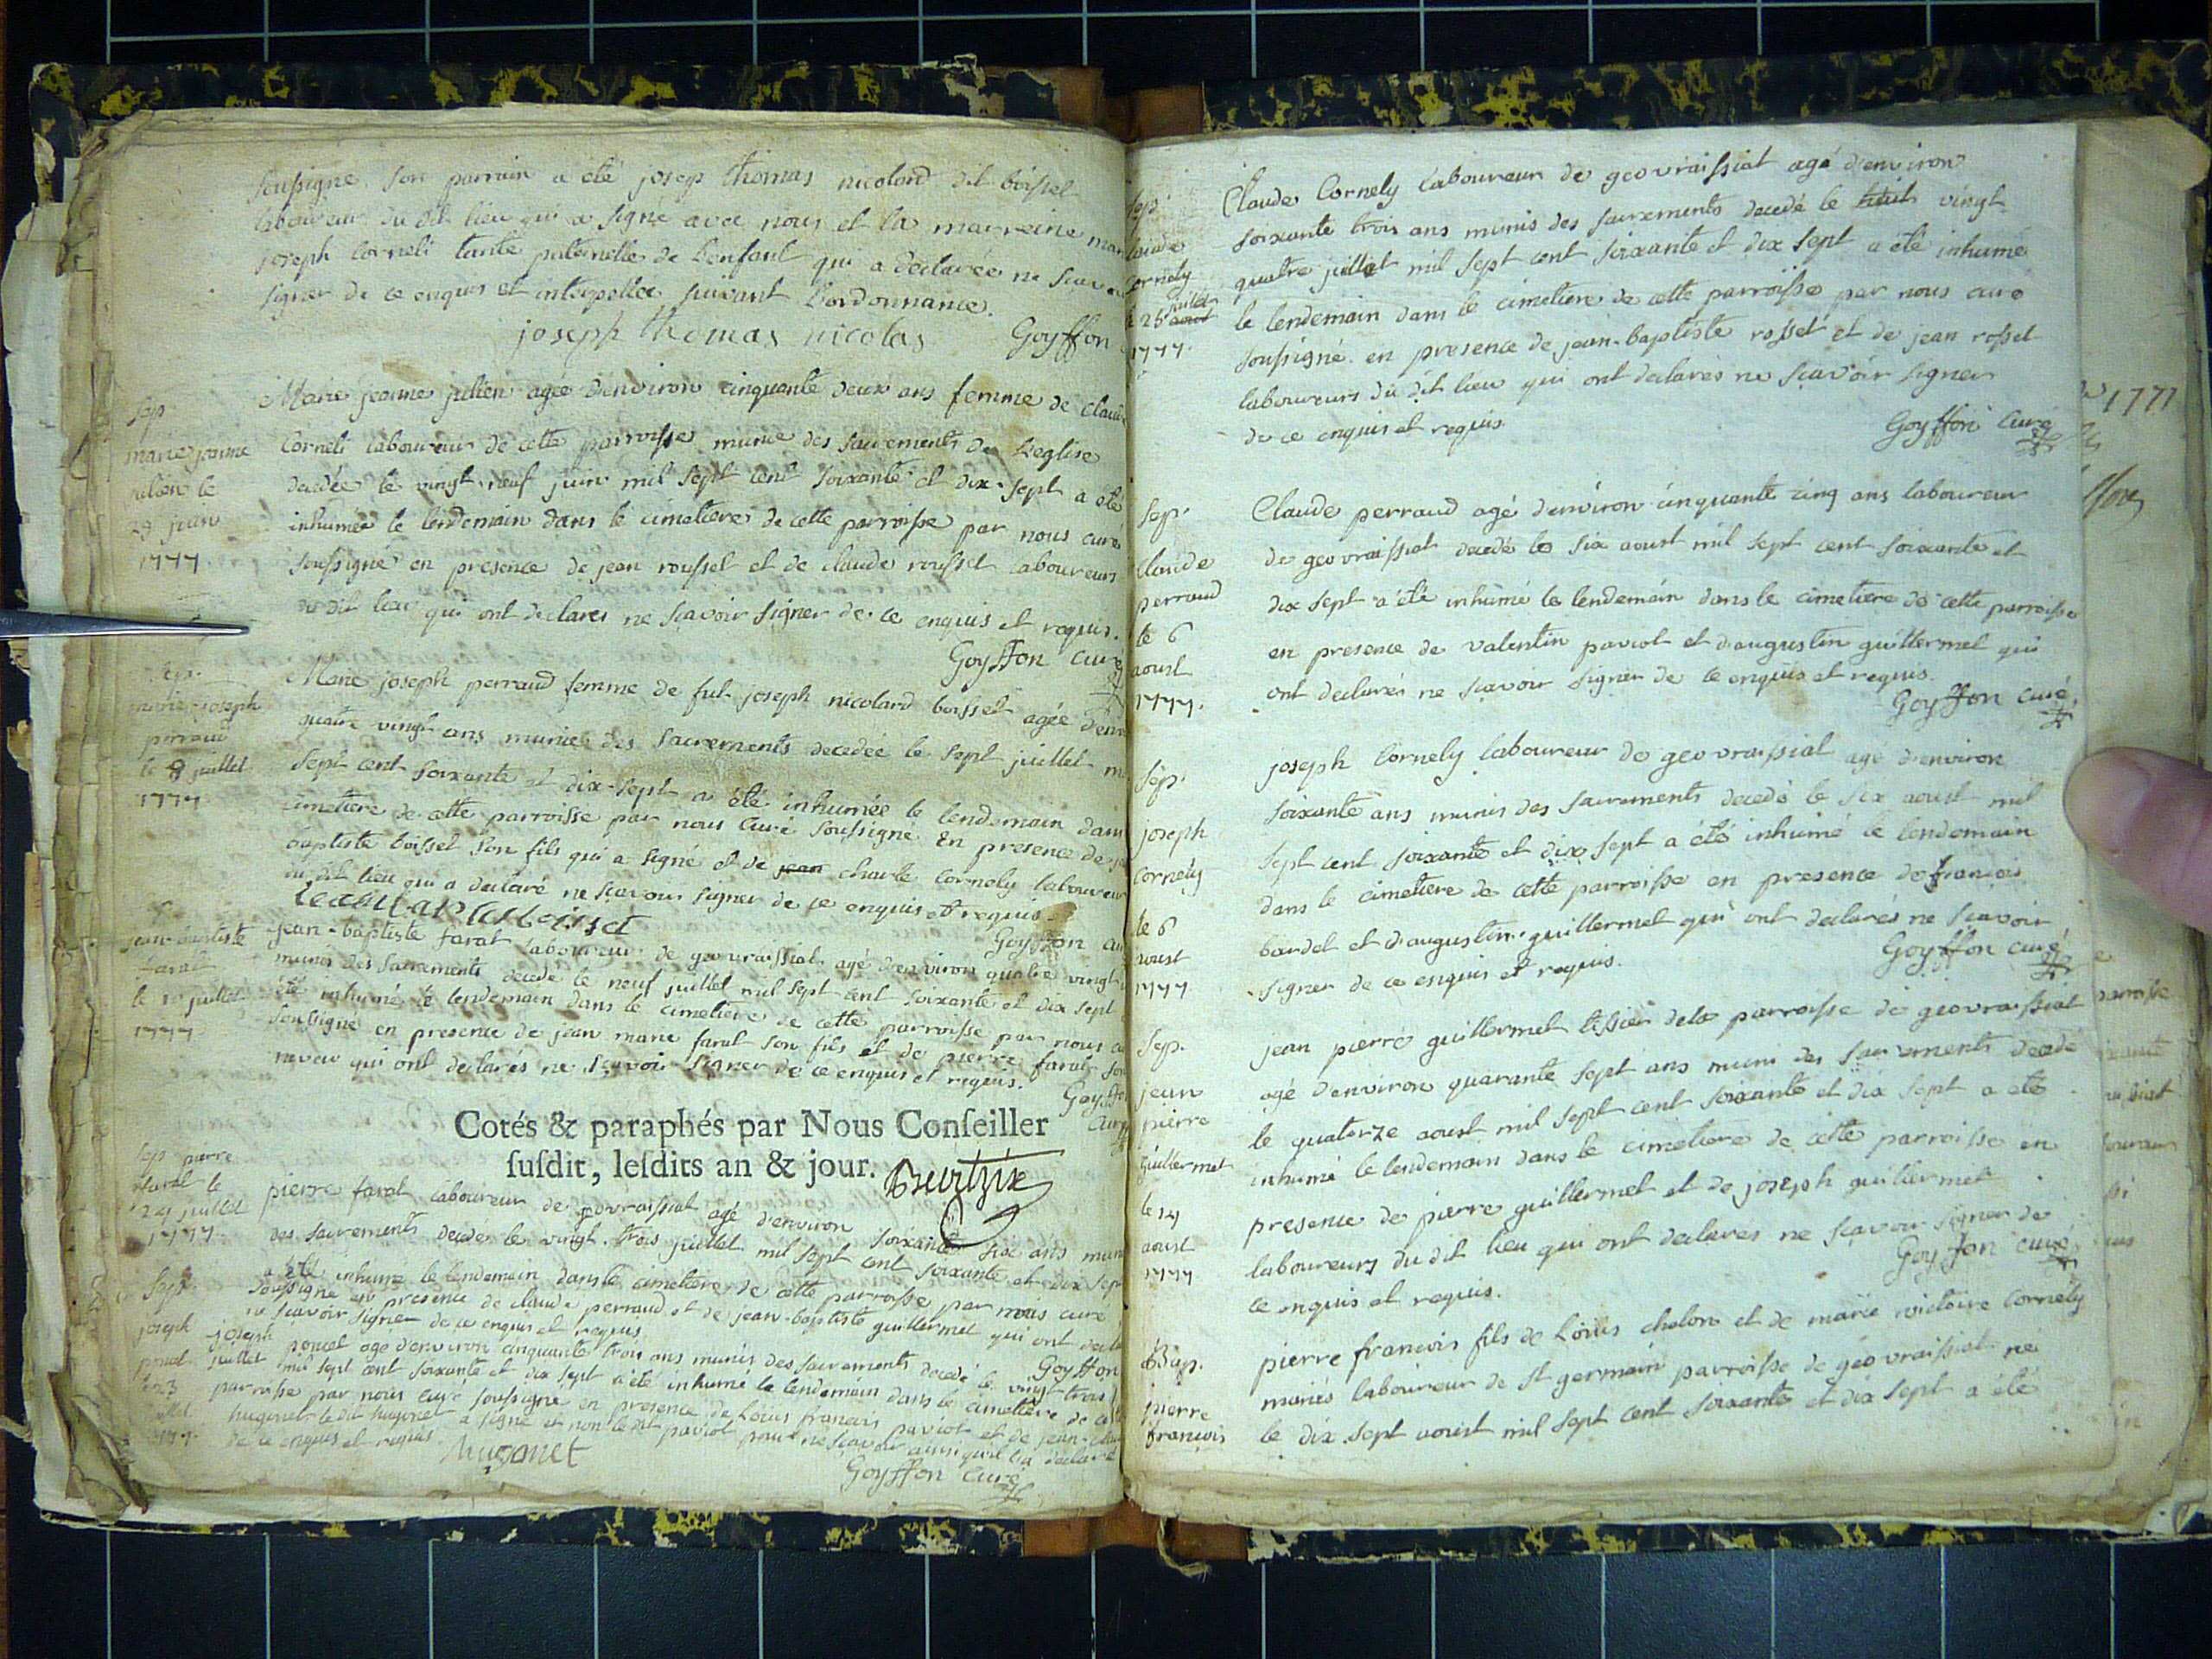 soussigné son parrain a été josep thomas nicolard dit boissel
laboureur du dit lieu qui a signé avec nous et la marreine
joseph Corneli tante paternelle de Lenfant qui a declarée ne
signer de ce enquis et interpellée suivant L'ordonnance.
joseph thomas nicolas Goyffon
Sep
marie jeanne
julien le
29 juin
1777
Marie jeanne julien agée denviron cinquante deux ans femme de Claude
Corneli laboureur de cette parroisse munie des sacrements de Leglise
decedée le vingt neuf juin mil sept cent soixante et dix sept a eté
inhumée le lendemain dans le cimetiere de cette parroisse par nous curé
soussigné en presence de jean roussel et de claude roussel laboureurs
du dit lieu qui ont declares ne scavoir signer de ce enquis et requis.
Goyffon Curé
Sep.
marie joseph
perraud
le 8 juillet
1777
Marie joseph perraud femme de fut joseph nicolard boissel agée
quatre vingt ans munie des sacrements decedée le sept juillet
sept cent soixante et dix-sept a été inhumée le lendemain dans
cimetiere de cette parroisse par nous Curé soussigné En presence de
baptiste boissel son fils qui a signé et de jean charle Cornely laboureur
du dit lieu qui a declaré ne scavoir signer de ce enquis et requis
Goyffon
jean-baptiste
farat
le 10 juillet
1777
jean-baptiste farat laboureur de geovraissiat agé denviron quatre vingt
munis des sacrements decedé le neuf juillet mil sept cent soixante et dix sept
été inhumé le lendemain dans le cimetiere de cette parroisse par nous
soussigné en presence de jean marie farat son fils et de pierre farat
neveu qui ont declarés ne scavoir signer de ce enquis et requis.
Cotés & paraphés par Nous Conſeiller
ſuſdit, leſdits an & jour.
Sep pierre
farat le
24 juillet
1777
pierre farat laboureur de geovraissiat agé d'environ soixante six ans
des sacrements decedé le vingt trois juillet mil sept cent soixante et dix sept
a été inhumé le lendemain dans le cimetiere de cette parroisse par nous curé
soussigné en presence de claude perraud et de jean-baptiste guillermet qui ont
ne scavoir signer de ce enquis et requis
Goyffon
Sep.
joseph
1777
joseph poncet agé d'environ cinquante trois ans munis des sacrements decedé le vingt trois
juillet mil sept cent soixante et dix sept a été inhumé le lendemain dans le cimetiere de
parroisse par nous curé soussigné en presence de Loüis francois paviot et de jean
hugonet le dit hugonet a signé et non le dit paviot pour ne scavoir ainsi qu'il la declaré
de ce enquis et requis
hugonet
Goyffon Curé
Sep.
Claude
Cornely
le 25 aout juillet
1777.
Claude Cornely laboureur de geovraissiat agé d'environ
soixante trois ans munis des sacrements decedé le vingt
quatre juillet mil sept cent soixante et dix sept a été inhumé
le lendemain dans le cimetiere de cette parroisse par nous curé
soussigné en presence de jean-baptiste rosset et de jean rosset
laboureurs du dit lieu qui ont declarés ne scavoir signer
de ce enquis et requis
Goyffon Curé
Sep.
Claude
perraud
le 6
aoust
1777.
Claude perraud agé d'environ cinquante zinq ans laboureur
de geovraissiat decedé le six aoust mil sept cent soixante et
dix sept a été inhumé le lendemain dans le cimetiere de cette parroisse
en presence de valentin paviot et d'augustin guillermet qui
ont declarés ne scavoir signer de ce enquis et requis.
Goyffon curé
Sep.
joseph
Cornely
le 6
aoust
1777
joseph Cornely laboureur de geovraissiat agé d'environ
soixante ans munis des sacrements decedé le six aoust mil
sept cent soixante et dix sept a été inhumé le lendemain
dans le cimetiere de cette parroisse en presence de francois
bardet et d'augustin guillermet qui ont declarés ne scavoir
signer de ce enquis et requis.
Goyffon curé
Sep.
jean
pierre
guillermet
le 14
aoust
1777
jean pierre guillermet tissier dela parroisse de geovraissiat
agé denviron quarante sept ans munis des sacrements decedé
le quatorze aoust mil sept cent soixante et dix sept a eté
inhumé le lendemain dans le cimetiere de cette parroisse en
presence de pierre guillermet et de joseph guillermet
laboureurs du dit lieu qui ont declares ne scavoir signer de
ce enquis et requis.
Goyffon curé
Bap.
pierre
francois
pierre francois fils de Loüis chalon et de marie victoire Cornely
mariés laboureur de st germain parroisse de geovraissiat né
le dix sept aoust mil sept cent soixante et dix sept a été
1777